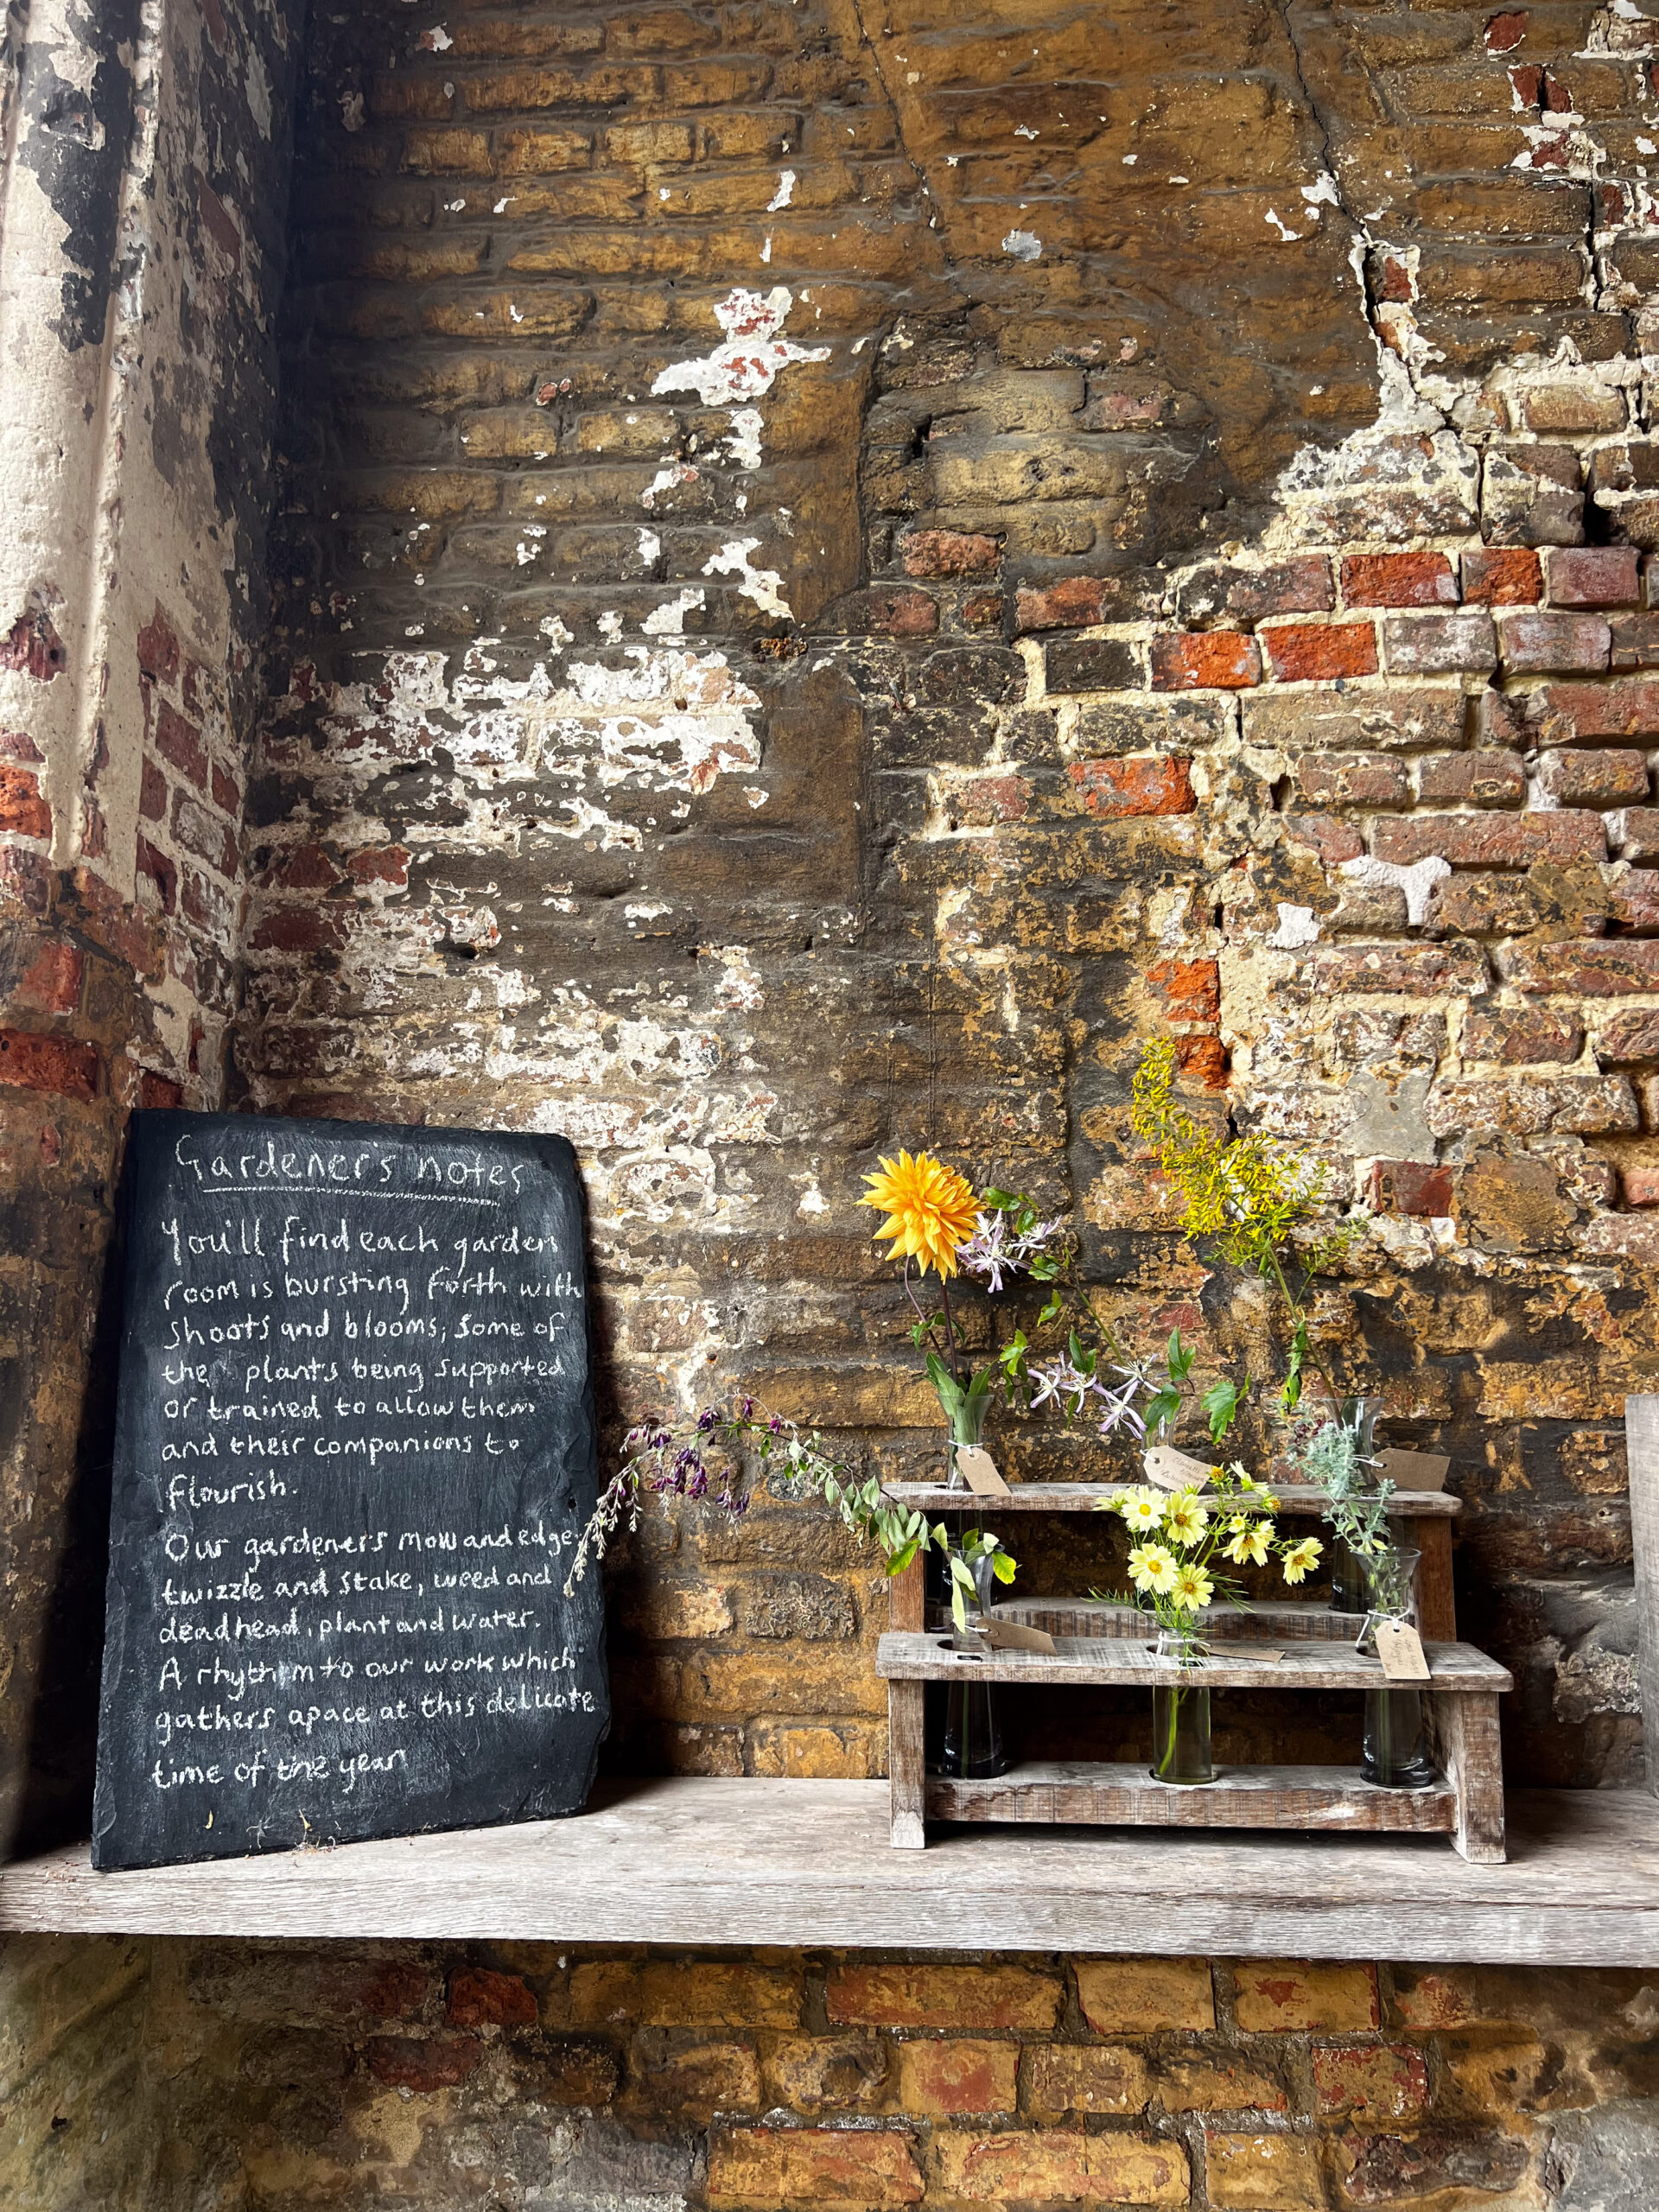 Gardener's notes
You'll find each garden
room is bursting forth with
shoots and blooms, some of
the plants being supported
or trained to allow them
and their companions to
flourish.
Our gardeners mow and edge
twizzle and stake, weed and
deadhead, plant and water.
A rhythm to our work which
gathers apace at this delicate
time of the year